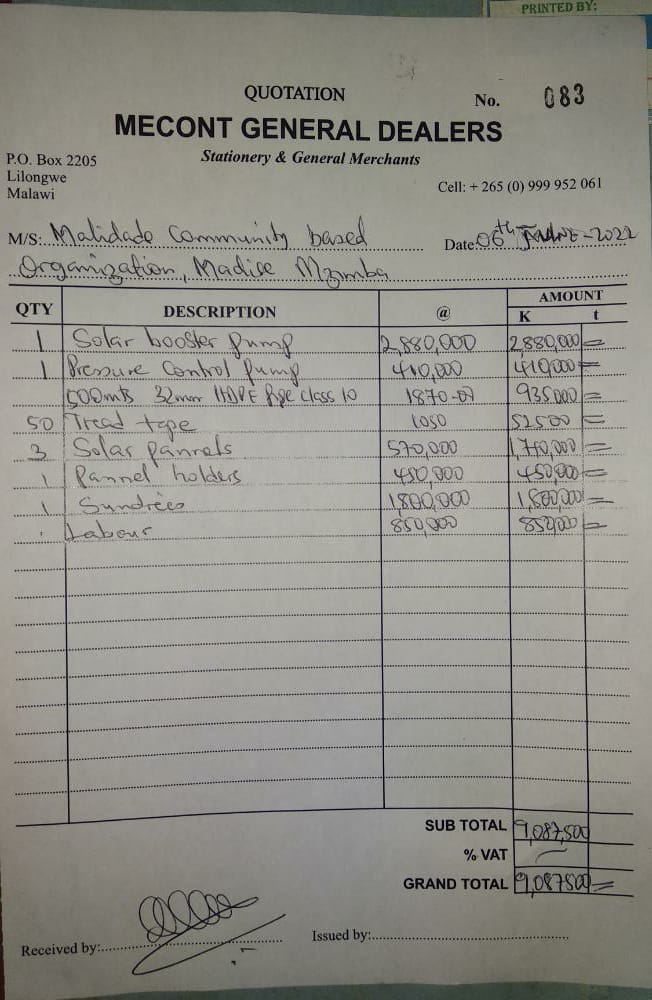 PRINTED BY:
QUOTATION
No. 083
MECONT GENERAL DEALERS
Stationery & General Merchants
P.O. Box 2205
Lilongwe
Malawi
Cell: + 265 (0) 999 952 061
M/S: Malidade Community based Date 06th JUNE-2022
Organization, Madise Mzimba
QTY DESCRIPTION @ AMOUNT
K t
1 Solar booster pump 2,880,000 2,880,000 =
1 Pressure Control pump 410,000 410,000 =
500mts 32mm HDPE Pipe class 10 1870-00 935,000 =
50 Tread tape 1050 52500 =
3 Solar pannels 570,000 1,710,000 =
1 Pannel holders 450,000 450,000 =
1 Sundries 1,800,000 1,800,000 =
Labour 850,000 850,000 =
SUB TOTAL 9,087,500
% VAT –
GRAND TOTAL 9,087500 =
Received by:
Issued by: